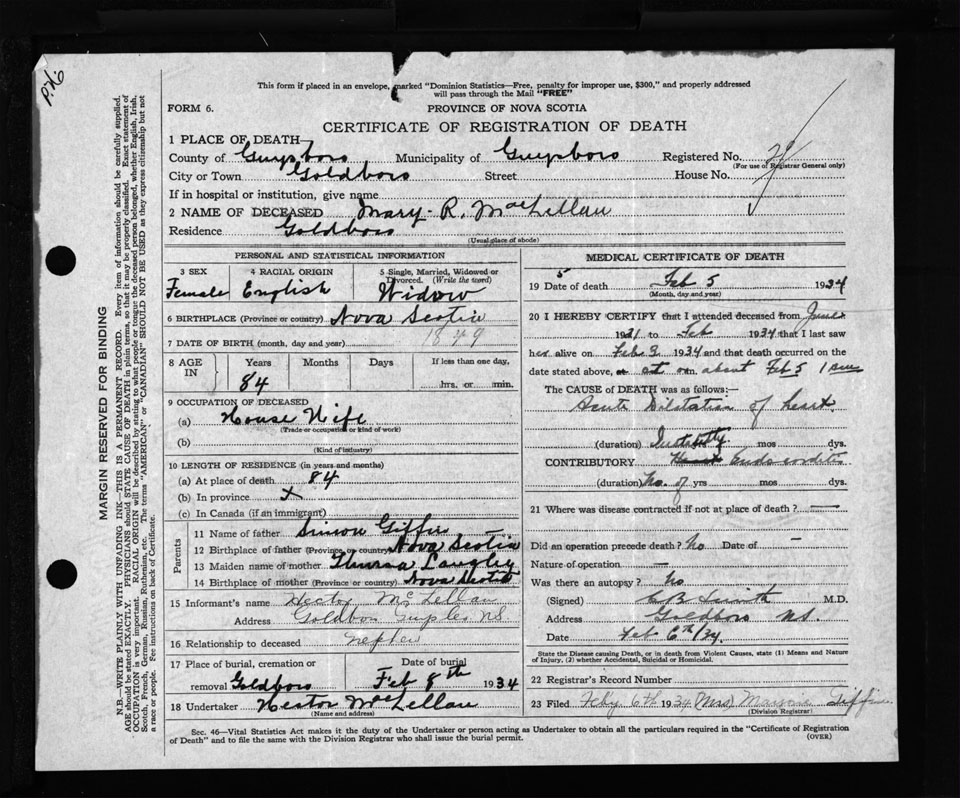 P.X.
This form if placed in an envelope, marked "Dominion Statistics—Free, penalty for improper use, $300," and properly addressed
will pass through the Mail "FREE"
FORM 6.
PROVINCE OF NOVA SCOTIA
CERTIFICATE OF REGISTRATION OF DEATH
1 PLACE OF DEATH—
County of Guysboro Municipality of Guysboro Registered No.
(For use of Registrar General only)
City or Town Goldboro Street House No.
If in hospital or institution, give name
2 NAME OF DECEASED Mary R. MacLellan
Residence Goldboro
(Usual place of abode)
PERSONAL AND STATISTICAL INFORMATION
3 SEX 4 RACIAL ORIGIN 5 Single, Married, Widowed or Divorced. (Write the word)
Female English Widow
6 BIRTHPLACE (Province or country) Nova Scotia
7 DATE OF BIRTH (month, day and year) 1849
8 AGE IN Years Months Days If less than one day,
84 hrs. or min.
9 OCCUPATION OF DECEASED
(a) House Wife
(Trade or occupation or kind of work)
(b)
(Kind of industry)
10 LENGTH OF RESIDENCE (in years and months)
(a) At place of death 84
(b) In province X
(c) In Canada (if an immigrant)
Parents
11 Name of father Simon Giffin
12 Birthplace of father (Province or country) Nova Scotia
13 Maiden name of mother Langley
14 Birthplace of mother (Province or country) Nova Scotia
15 Informant's name Hector McLellan
Address Goldboro NS
16 Relationship to deceased nephew
17 Place of burial, cremation or Date of burial
removal Goldboro Feb 8th 1934
18 Undertaker Hector MacLellan
(Name and address)
MEDICAL CERTIFICATE OF DEATH
5
19 Date of death Feb 5 1934
(Month, day and year)
20 I HEREBY CERTIFY that I attended deceased from June
1931 to Feb 1934 that I last saw
her alive on Feb 3 1934 and that death occurred on
date stated above, at or about Feb 5 1 am
The CAUSE of DEATH was as follows:—
Acute Dilatation of heart.
(duration) mos dys.
CONTRIBUTORY Endocarditis
(duration) No. of yrs mos dys.
21 Where was disease contracted if not at place of death? —
Did an operation precede death? No Date of —
Nature of operation —
Was there an autopsy? No
(Signed) C B Smith M.D.
Address Goldboro NS.
Date Feb 6th/34.
State the Disease causing Death, or in death from Violent Causes, state (1) Means and Nature
of Injury, (2) whether Accidental, Suicidal or Homicidal.
22 Registrar's Record Number
23 Filed Feby 6th 1934 (Mrs) Giffin
(Division Registrar)
Sec. 46—Vital Statistics Act makes it the duty of the Undertaker or person acting as Undertaker to obtain all the particulars required in the "Certificate of Registration
of Death" and to file the same with the Division Registrar who shall issue the burial permit. (OVER)
MARGIN RESERVED FOR BINDING
N.B.—WRITE PLAINLY WITH UNFADING INK—THIS IS A PERMANENT RECORD. Every item of information should be carefully supplied.
AGE should be stated EXACTLY. PHYSICIANS should STATE CAUSE OF DEATH in plain terms, so that it may be properly classified. Exact statement of
OCCUPATION is very important. RACIAL ORIGIN will be described by stating to what people or tongue the deceased person belonged, whether English, Irish,
Scotch, French, German, Russian, Ruthenian, etc. The terms "AMERICAN" or "CANADIAN" SHOULD NOT BE USED as they express citizenship but not
a race or people. See instructions on back of Certificate.